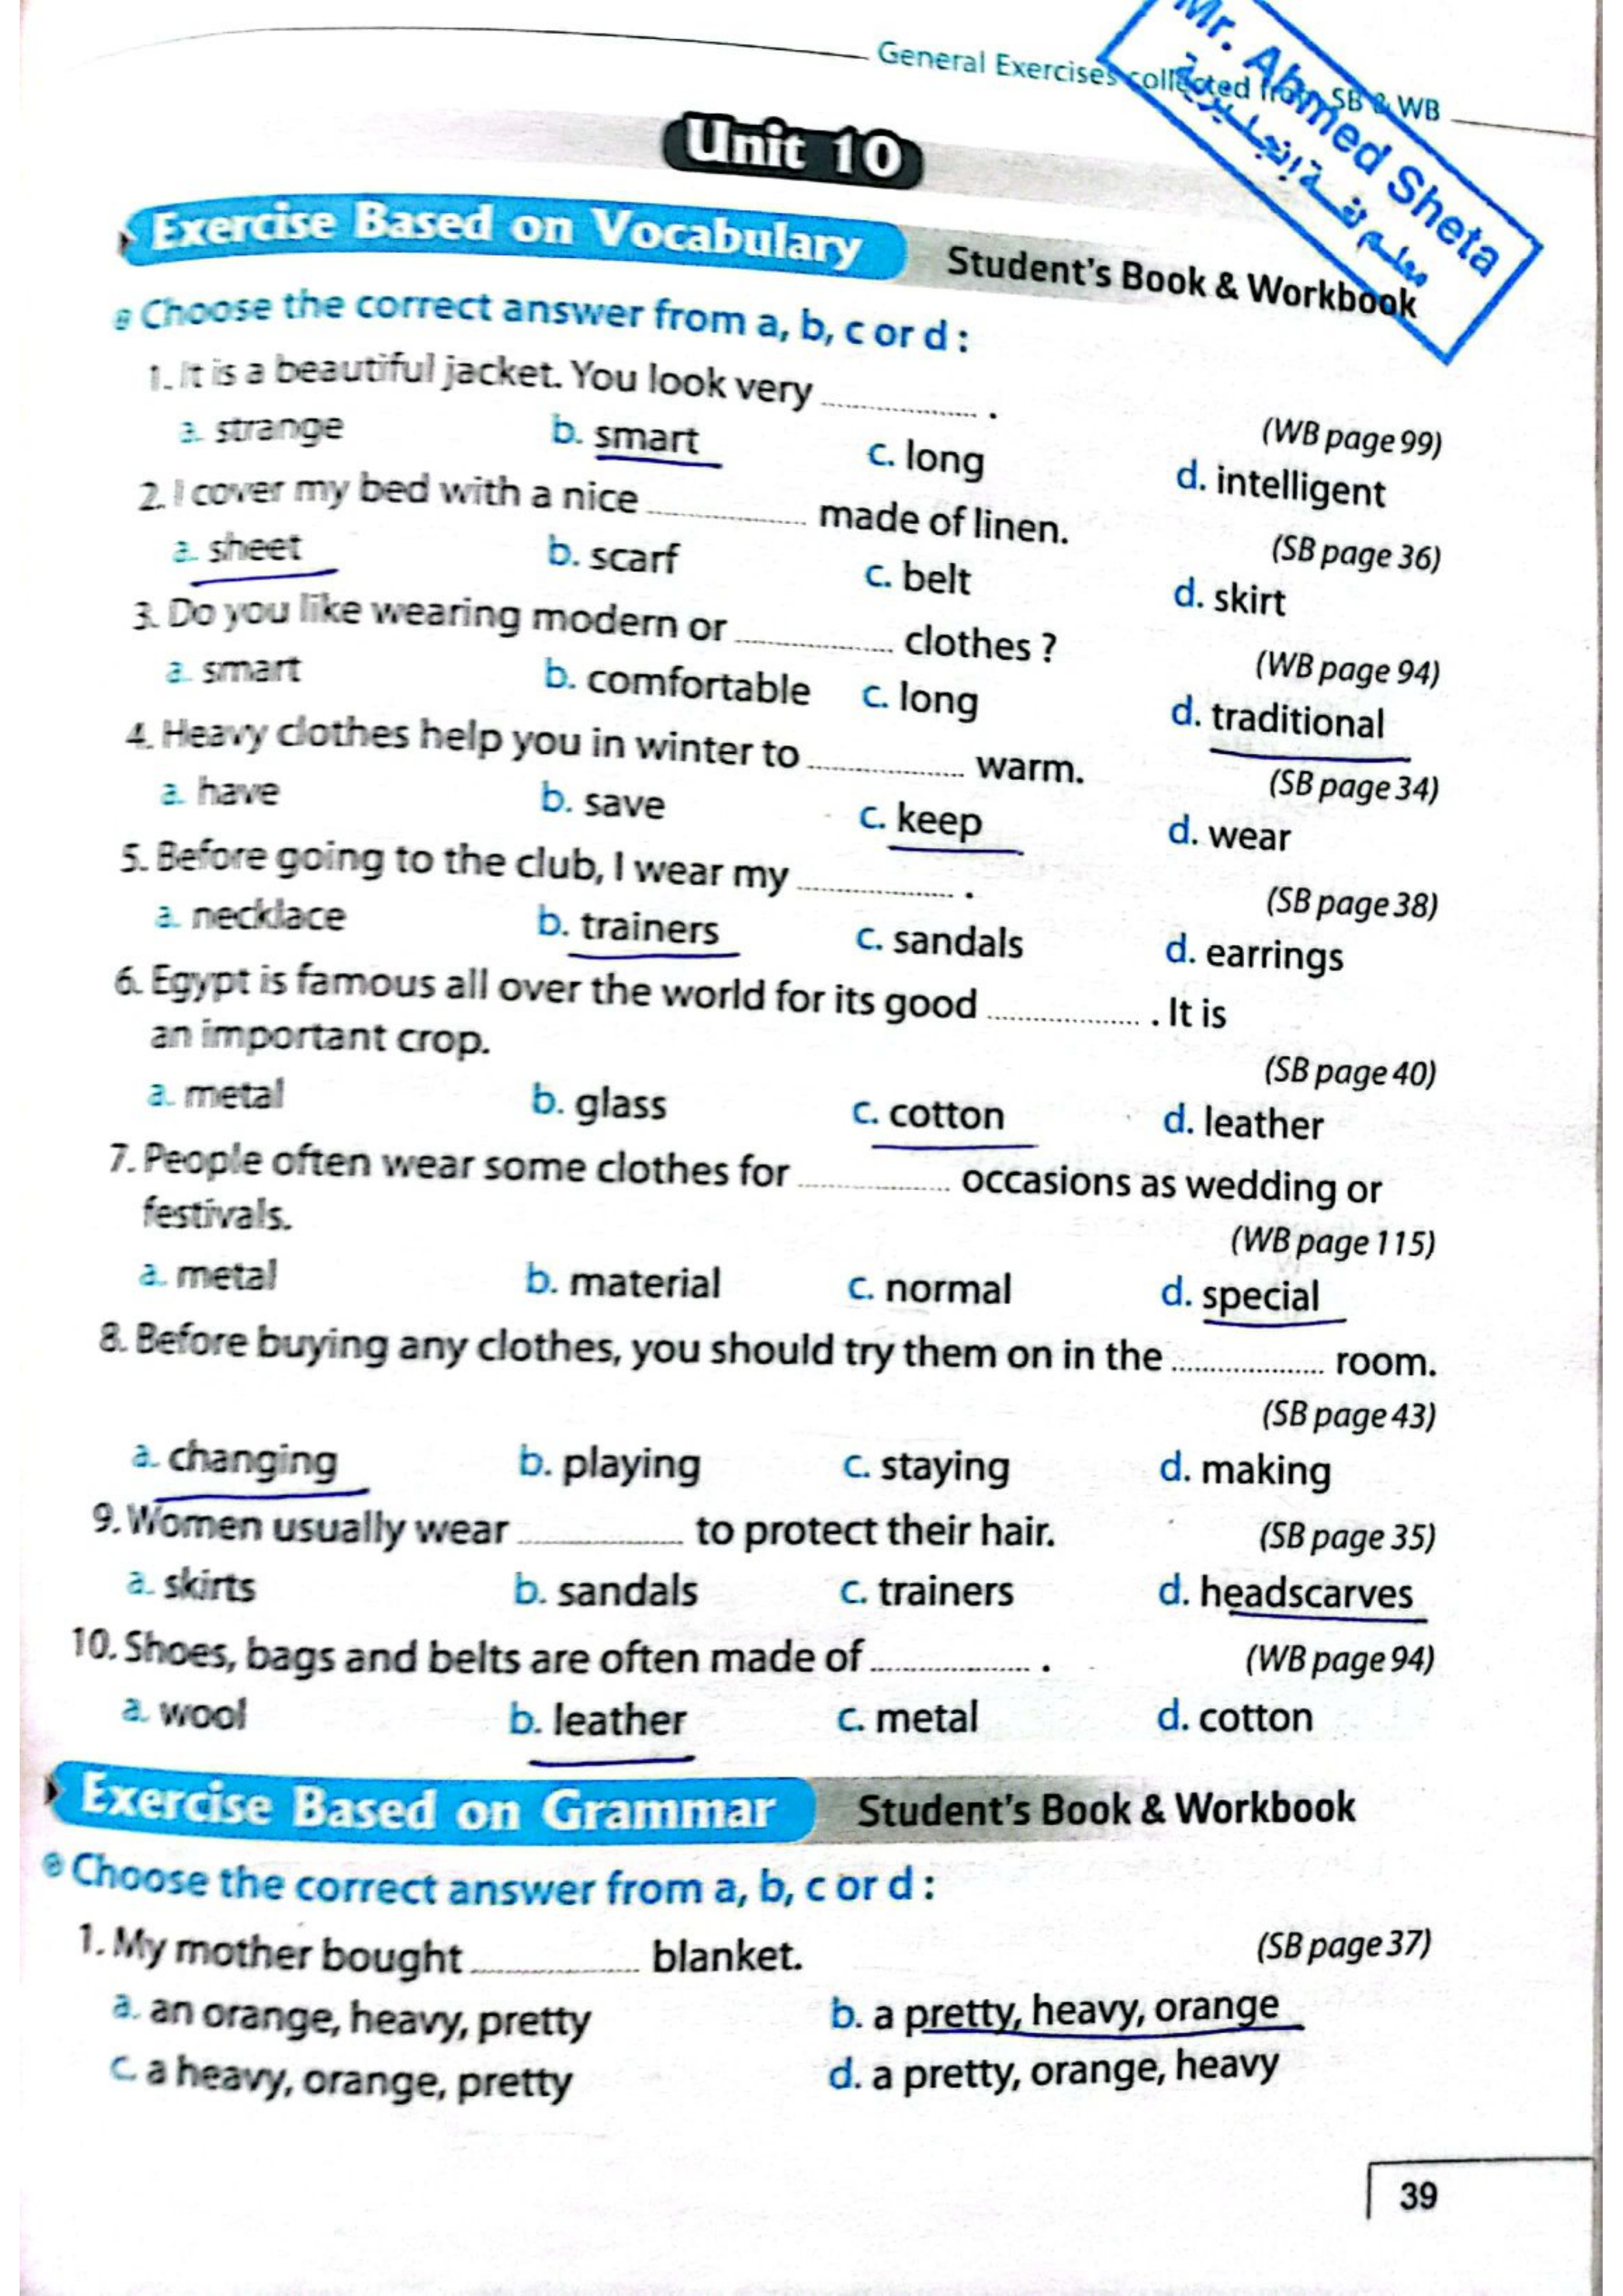 General Exercises collected from SB & WB
Mr. Ahmed Sheta
معلم لغة إنجليزية
Unit 10
Exercise Based on Vocabulary Student's Book & Workbook
Choose the correct answer from a, b, c or d :
1. It is a beautiful jacket. You look very .................... .
(WB page 99)
a. strange b. smart c. long d. intelligent
2. I cover my bed with a nice .................... made of linen.
(SB page 36)
a. sheet b. scarf c. belt d. skirt
3. Do you like wearing modern or .................... clothes ?
(WB page 94)
a. smart b. comfortable c. long d. traditional
4. Heavy clothes help you in winter to .................... warm.
(SB page 34)
a. have b. save c. keep d. wear
5. Before going to the club, I wear my .................... .
(SB page 38)
a. necklace b. trainers c. sandals d. earrings
6. Egypt is famous all over the world for its good .................... . It is
an important crop.
(SB page 40)
a. metal b. glass c. cotton d. leather
7. People often wear some clothes for .................... occasions as wedding or
festivals.
(WB page 115)
a. metal b. material c. normal d. special
8. Before buying any clothes, you should try them on in the .................... room.
(SB page 43)
a. changing b. playing c. staying d. making
9. Women usually wear .................... to protect their hair. (SB page 35)
a. skirts b. sandals c. trainers d. headscarves
10. Shoes, bags and belts are often made of .................... . (WB page 94)
a. wool b. leather c. metal d. cotton
Exercise Based on Grammar Student's Book & Workbook
Choose the correct answer from a, b, c or d :
1. My mother bought .................... blanket. (SB page 37)
a. an orange, heavy, pretty b. a pretty, heavy, orange
c. a heavy, orange, pretty d. a pretty, orange, heavy
39